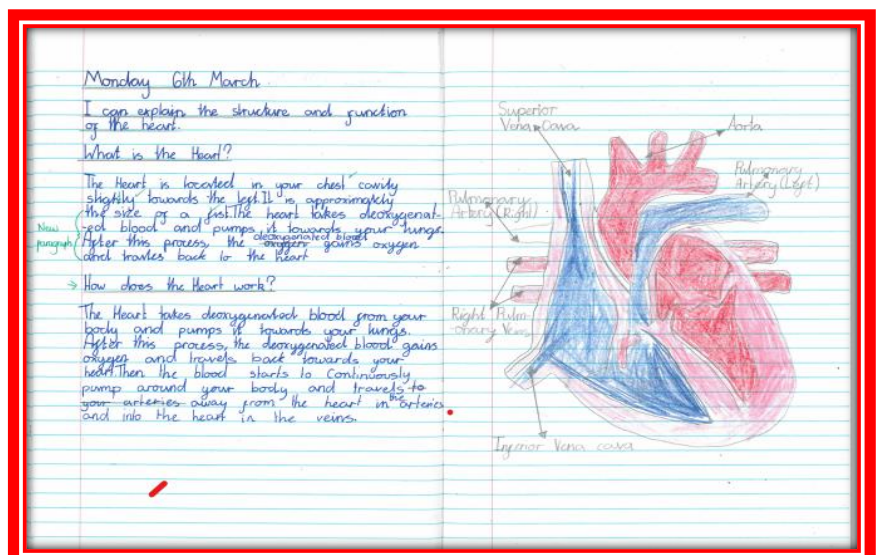 Monday 6th March
I can explain the structure and function
of the heart.
What is the Heart?
The Heart is located in your chest cavity
slightly towards the left. It is approximately
the size of a fist. The heart takes deoxygenat-
ed blood and pumps it towards your lungs.
After this process, the oxygen deoxygenated blood gains oxygen
and travles back to the heart
New
paragraph
How does the Heart work?
The Heart takes deoxygenated blood from your
body and pumps it towards your lungs.
After this process, the deoxygenated blood gains
oxygen and travels back towards your
heart. Then the blood starts to Continuously
pump around your body and travels to
your arteries away from the heart in the arteries
and into the heart in the veins.
Superior
Vena cava
Aorta
Pulmonary
Artery (Left)
Pulmonary
Artery (Right)
Right Pulm-
onary Veins
Inferior Vena cava